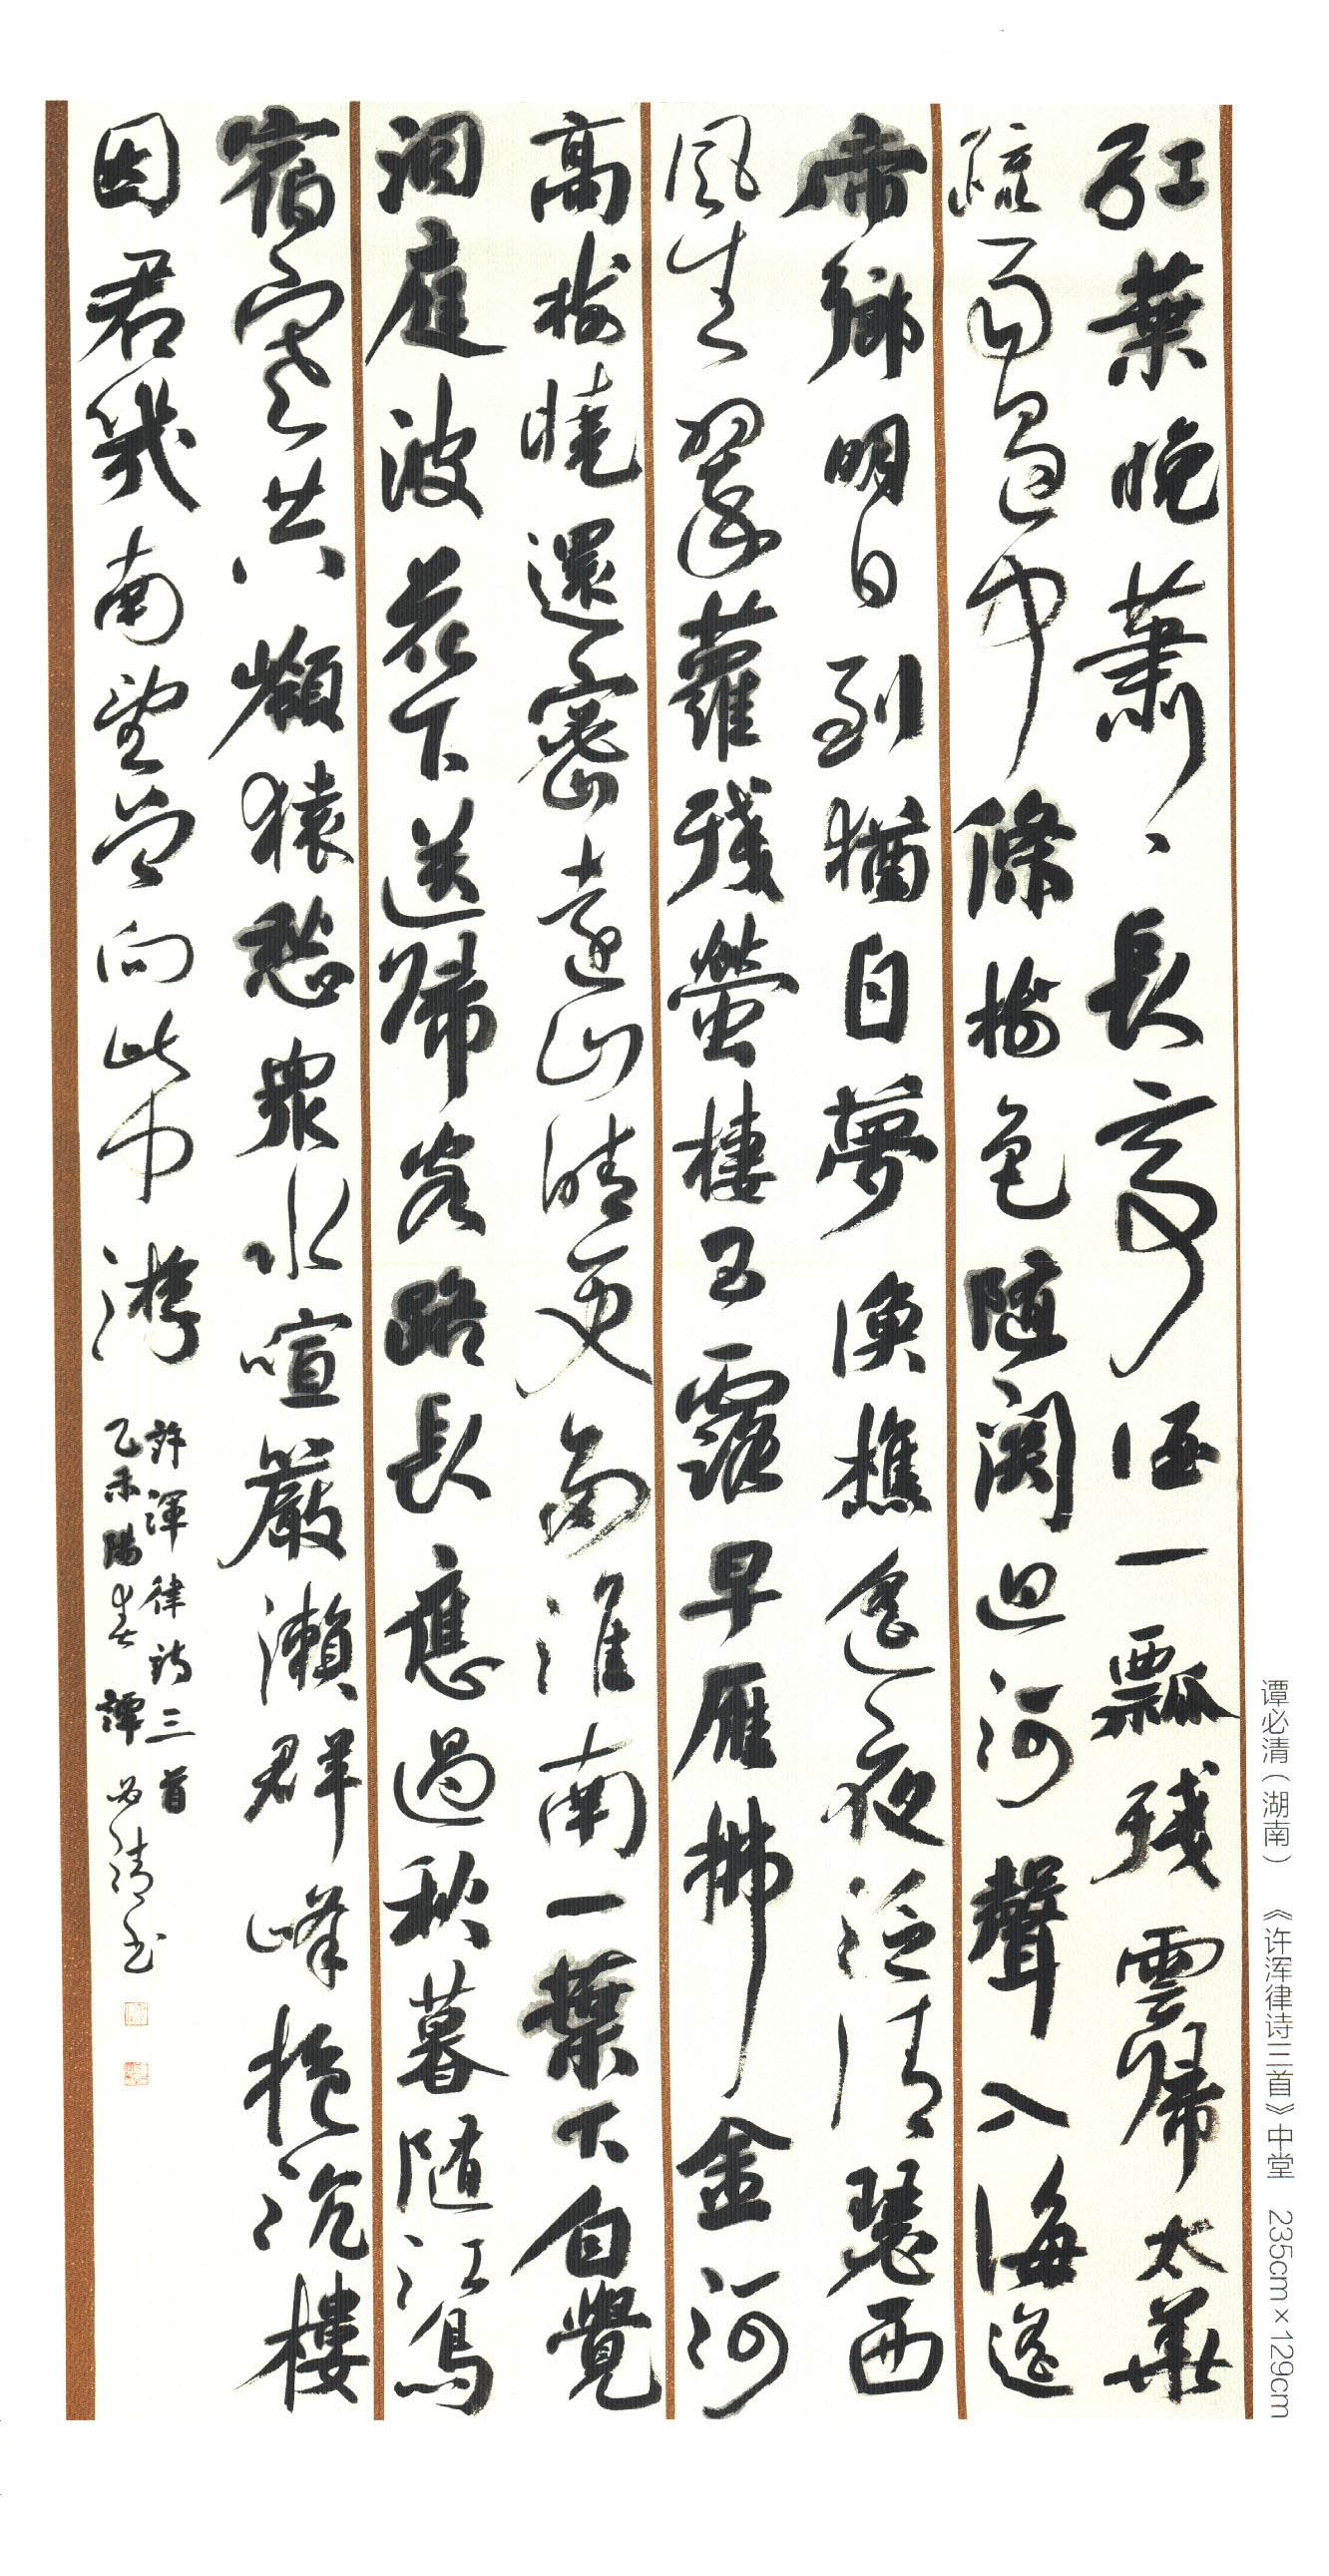 紅葉晚蕭、長亭酒一瓢殘雲歸太華
疏雨過中條樹色隨關迥河聲入海遙
帝鄉明日到猶自夢漁樵遙夜泛清瑟西
風生翠蘿殘螢棲玉露早雁拂金河
高樹曉還密遠山晴更多淮南一葉下自覺
洞庭波花下送歸客路長應過秋暮隨江鳥
宿寒共嶺猿愁衆水喧嚴瀨群峰抱沉樓
因君幾南望曾向此中游
許渾律詩三首
乙未陽春譚必清書
谭必清（湖南）　《许浑律诗三首》中堂　235cm×129cm